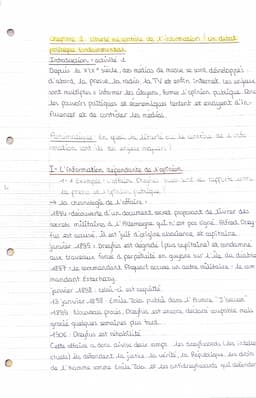 Chapitre 2. Liberté ou contrôle de l'information : un débat
politique fondamental
Introduction : activité 1
Depuis le XIXe siècle, les médias de masse se sont développés :
d'abord la presse, la radio, la TV et enfin Internet. Les enjeux
sont multiples : informer les citoyens, former l'opinion publique. Donc
les pouvoirs politiques et économiques tentent et essayent d'in-
fluencer et de contrôler les médias.
Problématique : En quoi la liberté ou le contrôle de l'info
rmation sont ils des enjeux majeurs ?
I- L'information dépendante de l'opinion
1-1 Exemple : L'affaire Dreyfus : quels sont les rapports entre
la presse et l'opinion publique ?
→ la chronologie de l'affaire :
1894 : découverte d'un document secret proposant de livrer des
secrets militaires à l'Allemagne qui n'est pas signé. Alfred Drey
fus est accusé, il est juif d'origine alsacienne et capitaine
janvier 1895 : Dreyfus est dégradé (plus capitaine) et condamné
aux travaux forcés à perpétuité en guyane sur l'île du diable
1897 : le commandant Picquart accuse un autre militaire : le com
mandant Esterhazy
janvier 1898 : celui-ci est acquitté
13 janvier 1898 : Emile Zola publie dans l'Aurore "J'accuse"
1899 : Nouveau procès, Dreyfus est encore déclaré coupable mais
gracié quelques semaines plus tard
1906 : Dreyfus est réhabilité
Cette affaire a donc divisé deux camps : les dreyfusards (les intellec
tuels) ils défendent la justice, la vérité, la République, les droits
de l'homme comme Emile Zola et les antidreyfusards qui défendent